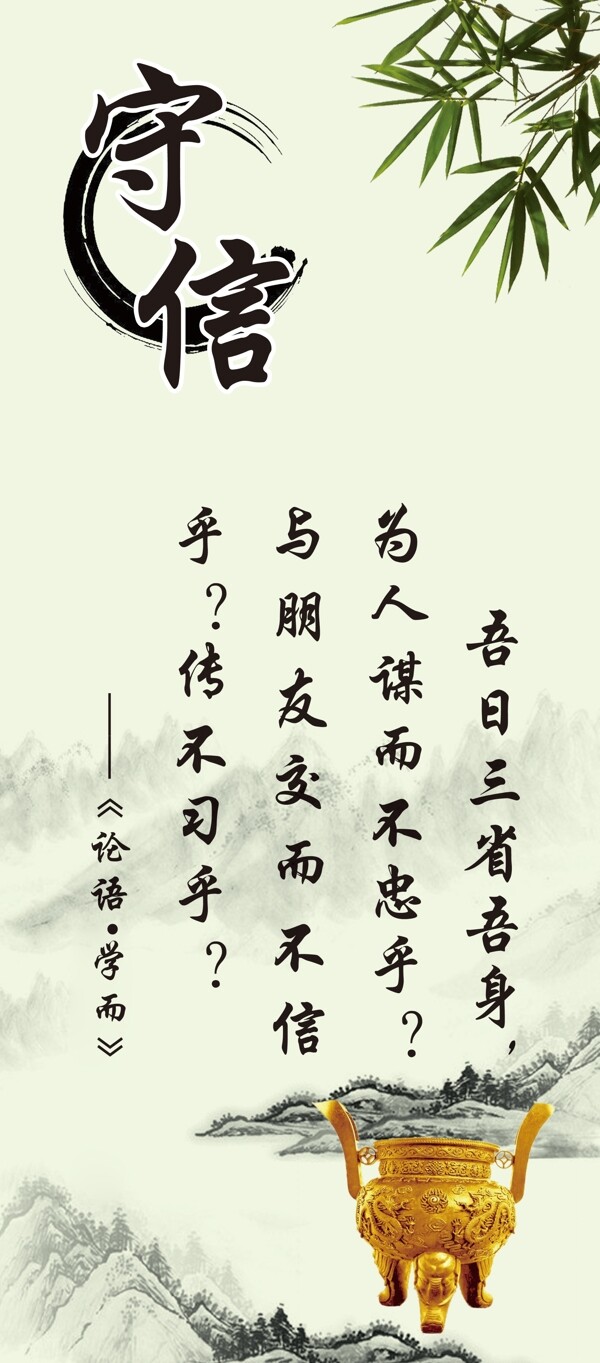 守信
吾日三省吾身，
为人谋而不忠乎？
与朋友交而不信
乎？传不习乎？
——《论语·学而》